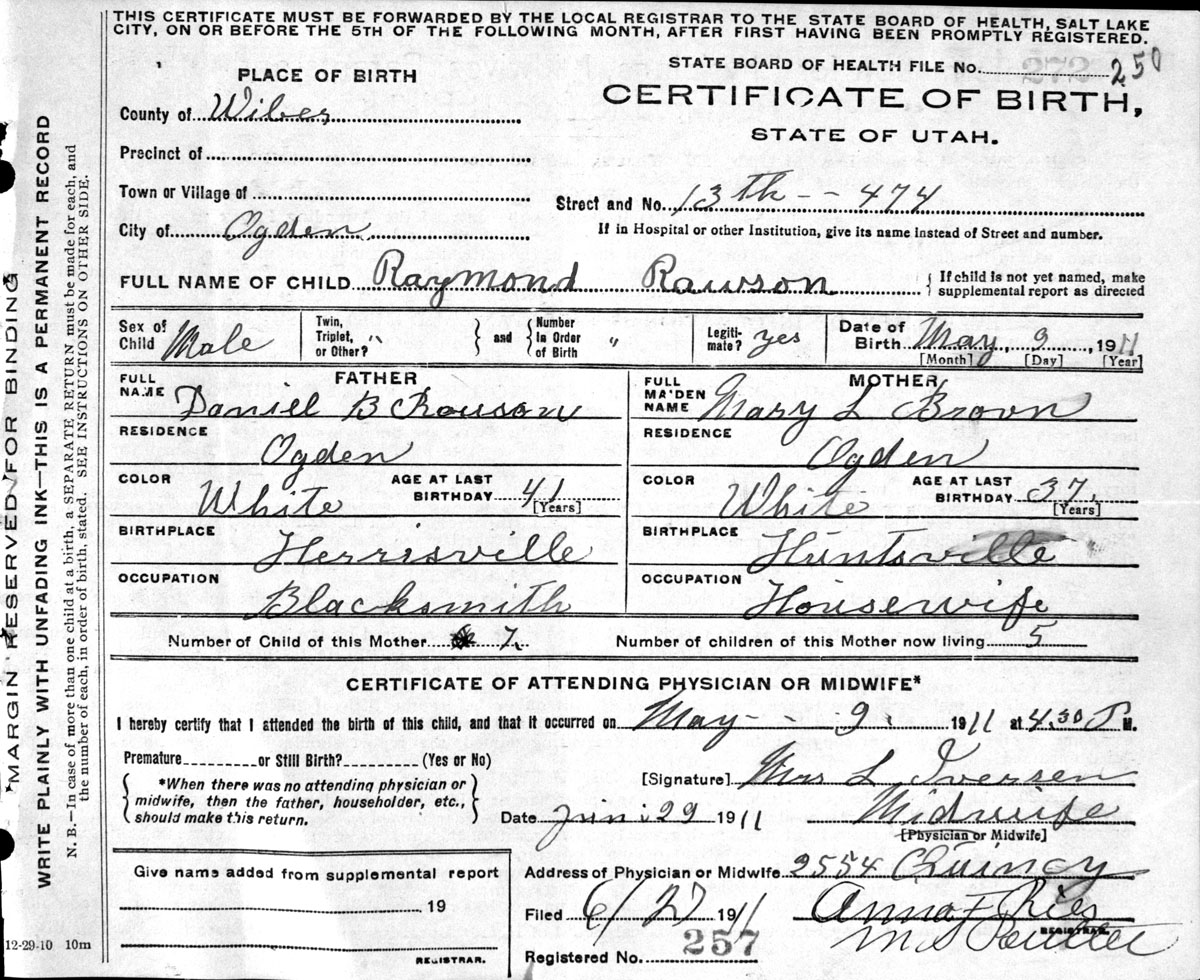 THIS CERTIFICATE MUST BE FORWARDED BY THE LOCAL REGISTRAR TO THE STATE BOARD OF HEALTH, SALT LAKE
CITY, ON OR BEFORE THE 5TH OF THE FOLLOWING MONTH, AFTER FIRST HAVING BEEN PROMPTLY REGISTERED.
PLACE OF BIRTH
STATE BOARD OF HEALTH FILE No. 250
CERTIFICATE OF BIRTH,
STATE OF UTAH.
County of Wiber
Precinct of
Town or Village of
Street and No. 13th -- 474
City of Ogden
If in Hospital or other Institution, give its name instead of Street and number.
FULL NAME OF CHILD Raymond Rawson { If child is not yet named, make
supplemental report as directed
Sex of
Child Male
Twin,
Triplet,
or Other? " } and { Number
In Order
of Birth "
Legiti-
mate? yes
Date of
Birth May 9, 1911
[Month] [Day] [Year]
FATHER
FULL
NAME Daniel B Rawson
RESIDENCE
Ogden
COLOR White AGE AT LAST
BIRTHDAY 41
[Years]
BIRTHPLACE
Herrisville
OCCUPATION
Blacksmith
MOTHER
FULL
MAIDEN
NAME Mary L Brown
RESIDENCE
Ogden
COLOR White AGE AT LAST
BIRTHDAY 37.
[Years]
BIRTHPLACE
Huntsville
OCCUPATION
Housewife
Number of Child of this Mother 7. Number of children of this Mother now living 5
CERTIFICATE OF ATTENDING PHYSICIAN OR MIDWIFE*
I hereby certify that I attended the birth of this child, and that it occurred on May - - 9. 1911 at 4.30 P M.
Premature or Still Birth? (Yes or No)
{ *When there was no attending physician or
midwife, then the father, householder, etc.,
should make this return. }
[Signature] Mrs L Iversen
Date 29 1911 Midwife
[Physician or Midwife]
Give name added from supplemental report
19
REGISTRAR.
Address of Physician or Midwife 2554 Quincy
Filed 6/27 1911 Anna F
REGISTRAR.
Registered No. 257
12-29-10 10m
MARGIN RESERVED FOR BINDING
WRITE PLAINLY WITH UNFADING INK—THIS IS A PERMANENT RECORD
N. B.—In case of more than one child at a birth, a SEPARATE RETURN must be made for each, and
the number of each, in order of birth, stated. SEE INSTRUCTIONS ON OTHER SIDE.